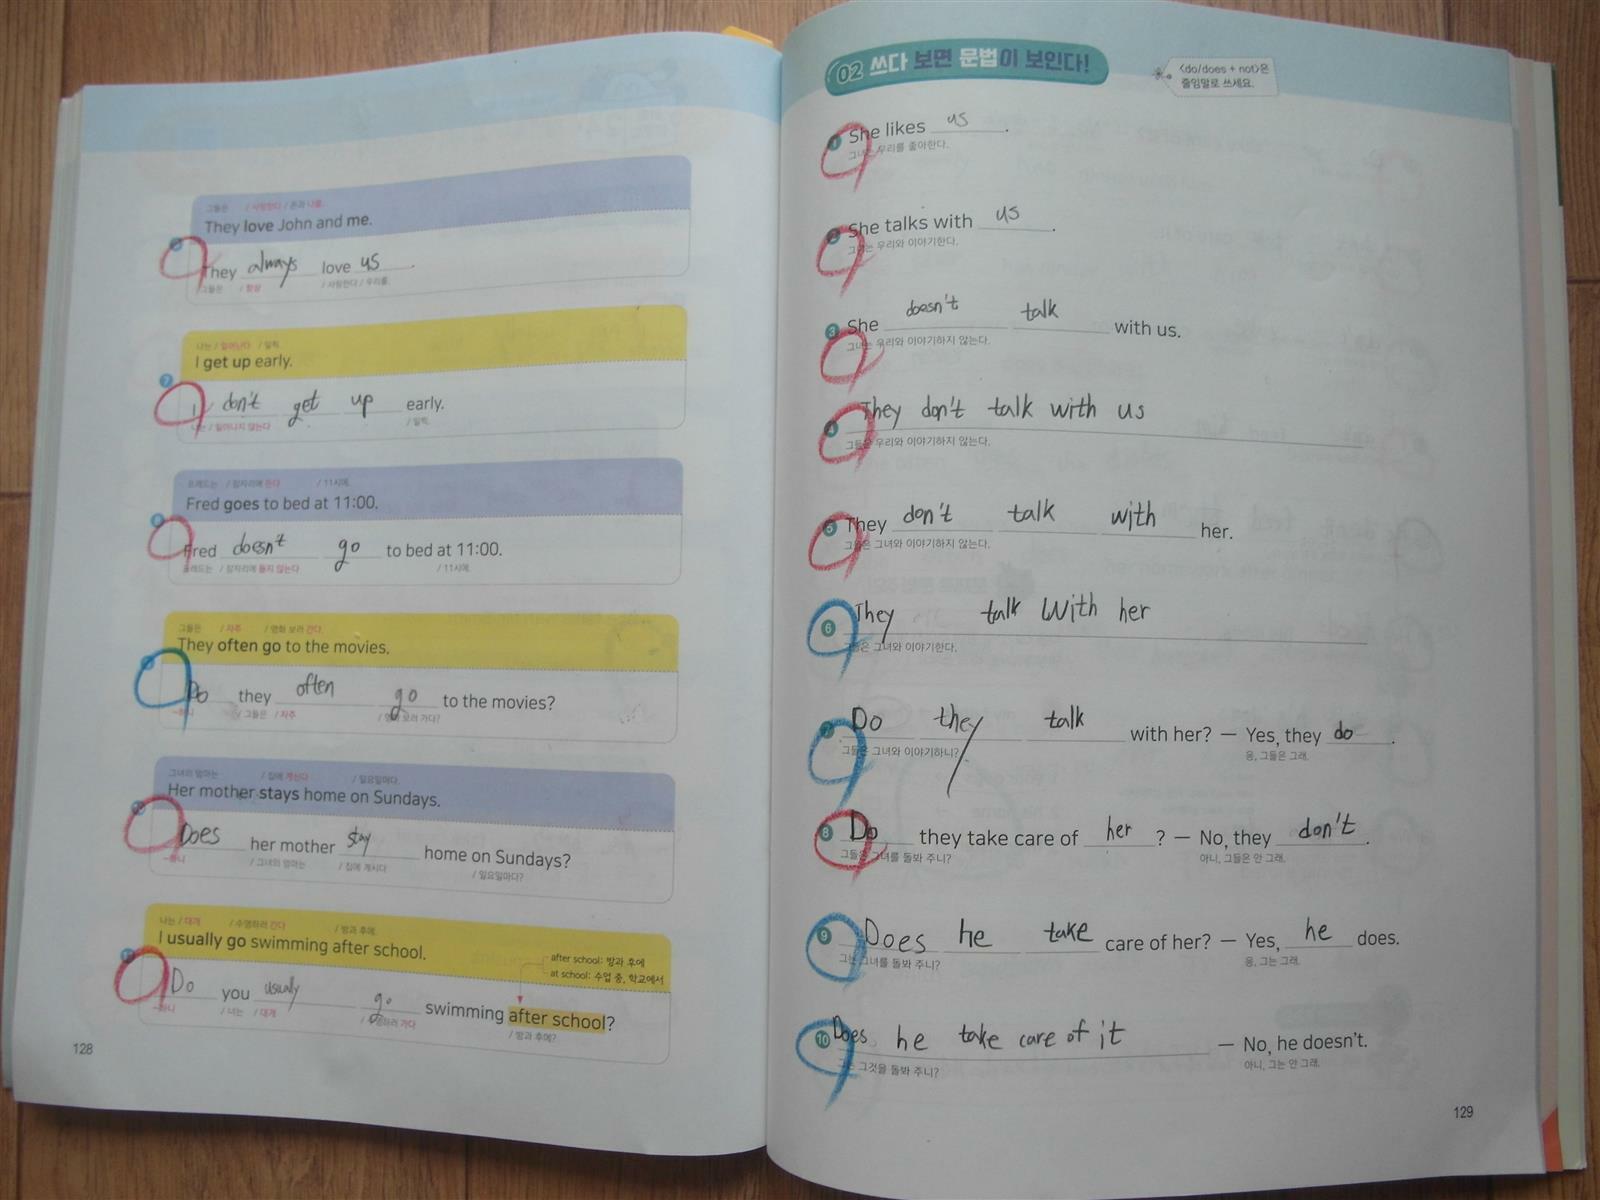 그들은 / 사랑한다 / 존과 나를.
They love John and me.
They always love us.
그들은 / 항상 / 사랑한다 / 우리를.
나는 / 일어난다 / 일찍.
I get up early.
7
I don't get up early.
나는 / 일어나지 않는다 / 일찍.
프레드는 / 잠자리에 든다 / 11시에.
Fred goes to bed at 11:00.
8
Fred doesn't go to bed at 11:00.
프레드는 / 잠자리에 들지 않는다 / 11시에.
그들은 / 자주 / 영화 보러 간다.
They often go to the movies.
Do they often go to the movies?
~하니 / 그들은 / 자주 / 영화 보러 가다?
그녀의 엄마는 / 집에 계신다 / 일요일마다.
Her mother stays home on Sundays.
Does her mother stay home on Sundays?
~하니 / 그녀의 엄마는 / 집에 계시다 / 일요일마다?
나는 / 대개 / 수영하러 간다 / 방과 후에.
I usually go swimming after school.
after school: 방과 후에
at school: 수업 중, 학교에서
Do you usually go swimming after school?
~하니 / 너는 / 대개 / 수영하러 가다 / 방과 후에?
128
02 쓰다 보면 문법이 보인다!
<do/does + not>은
줄임말로 쓰세요.
1 She likes us.
그녀는 우리를 좋아한다.
2 She talks with us.
그녀는 우리와 이야기한다.
3 She doesn't talk with us.
그녀는 우리와 이야기하지 않는다.
4 They don't talk with us
그들은 우리와 이야기하지 않는다.
5 They don't talk with her.
그들은 그녀와 이야기하지 않는다.
6 They talk with her
그들은 그녀와 이야기한다.
7 Do they talk with her? — Yes, they do.
그들은 그녀와 이야기하니? 응, 그들은 그래.
8 Do they take care of her? — No, they don't.
그들은 그녀를 돌봐 주니? 아니, 그들은 안 그래.
9 Does he take care of her? — Yes, he does.
그는 그녀를 돌봐 주니? 응, 그는 그래.
10 Does he take care of it — No, he doesn't.
그는 그것을 돌봐 주니? 아니, 그는 안 그래.
129